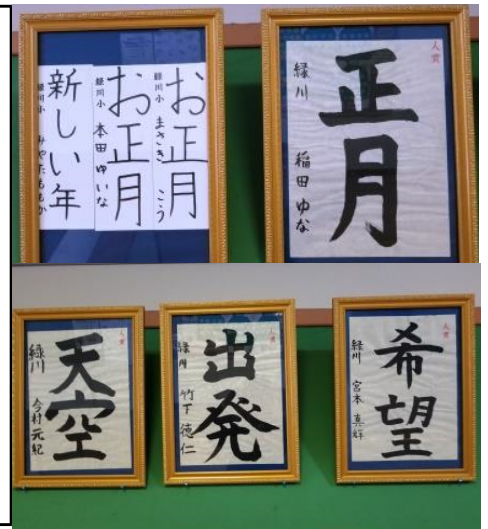 お正月
緑川小 まさき こう
お正月
緑川小 本田 ゆいな
新しい年
緑川小 みやたももか
入賞
正月
緑川 稲田 ゆな
入賞
天空
緑川 今村元紀
入賞
出発
緑川 竹下 徳仁
入賞
希望
緑川 宮本 真